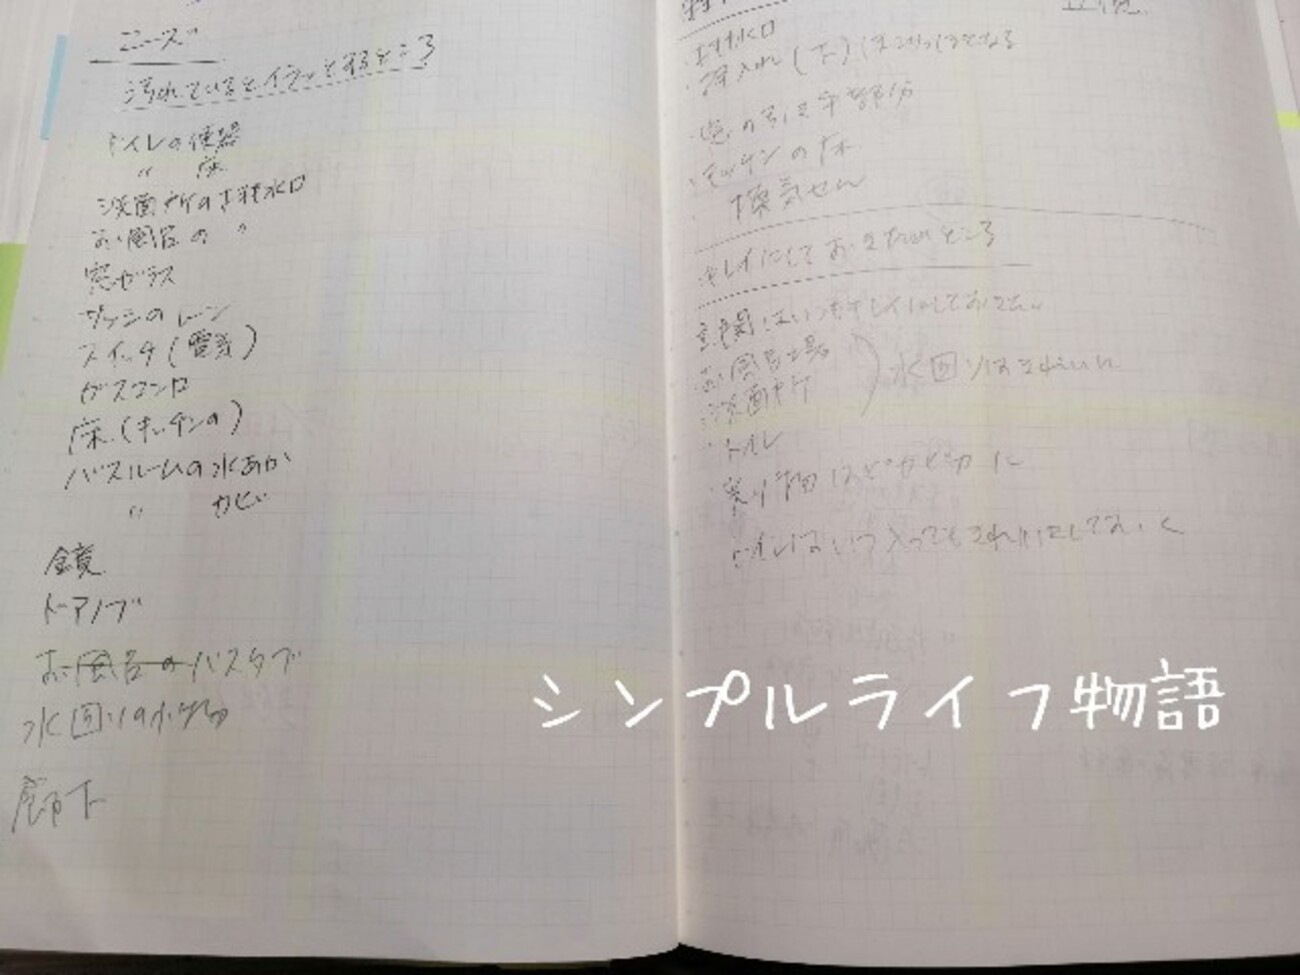 ニーズ
汚れているとイラッとするところ
トイレの便器
〃 床
洗面所の排水口
お風呂の 〃
窓ガラス
サッシのレーン
スイッチ(電気)
ガスコンロ
床(キッチンの)
バスルームの水あか
〃 カビ
鏡
ドアノブ
お風呂のバスタブ
水回りの
廊下
排水口
押入れ(下)はほこりっぽくなる
窓の
キッチンの床
換気せん
キレイにしておきたいところ
玄関はいつもキレイにしておきたい。
お風呂場
洗面所
水回りはきれいに
トイレ
光り物はピカピカに
トイレはいつ入ってもきれいにしておく
シンプルライフ物語